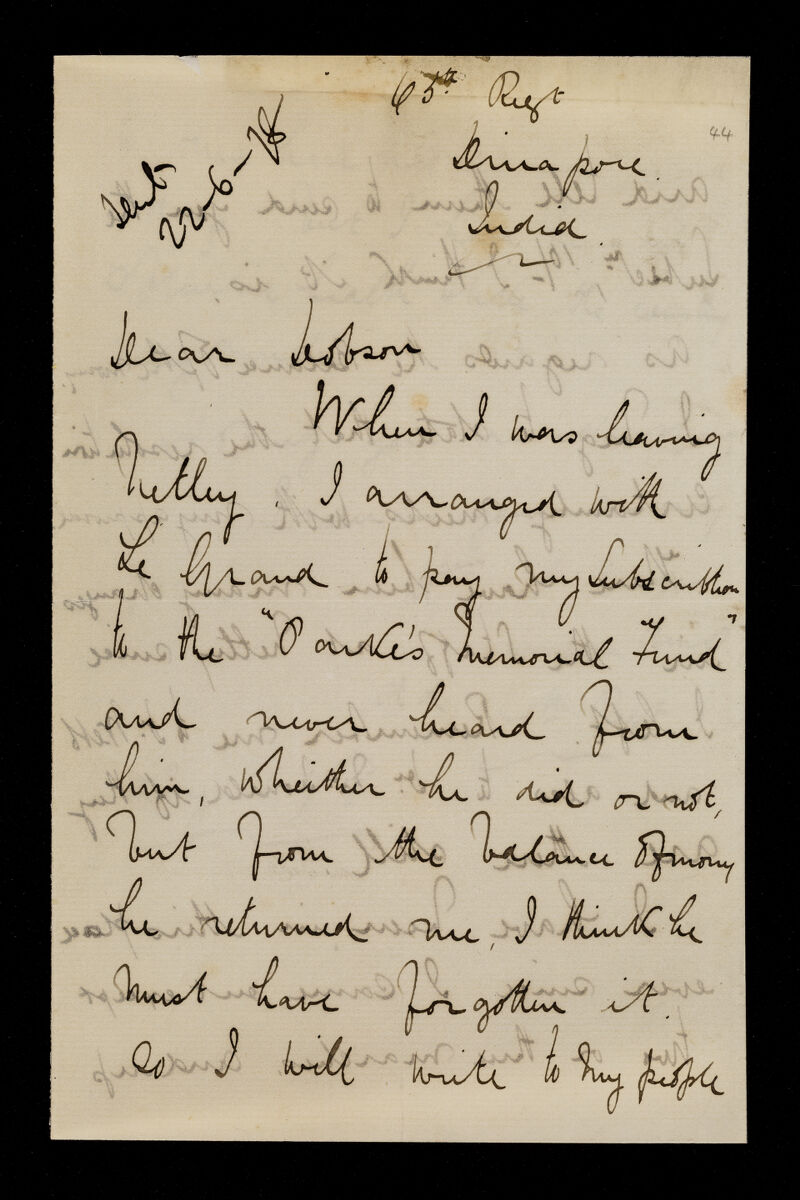 65th Regt
44
Dinapore.
India.
Sent
22-6-78
Dear Dobson
When I was leaving
Netley. I arranged with
Le Grand to pay my Subscribtion
to the "Parke's Memorial "Fund"
and never heard from
him, wheither he did or not,
but from the balance of mony
he returned me, I think he
must have forgotten it.
So I will write to my people